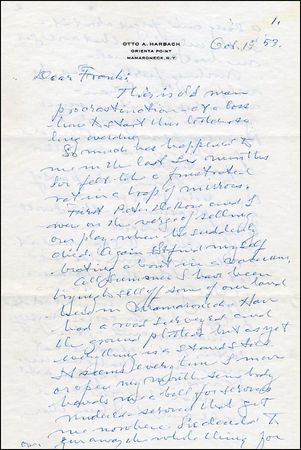 1.
OTTO A. HARBACH
ORIENTA POINT
MAMARONECK, N.Y.
Oct. 15 53.
Dear Frank:
This is old man
procrastination - at a loss
how to start this letter so
long overdue.
So much has happened to
me in the last six months
I've felt like a frustrated
rat in a trap of mirrors.
First Pete De Rose and I
were on the verge of selling
our play when he suddenly
died. Again I find myself
in a vacuum.
All summer I have been
trying to sell of some of our land
here in Mamaroneck. Have
had a road surveyed and
the ground plotted but as yet
everything is a stand still.
It seems every time I move
or open my mouth somebody
hands me a bill for services
services that get
me nowhere. I've decided to
give away the whole thing for
over